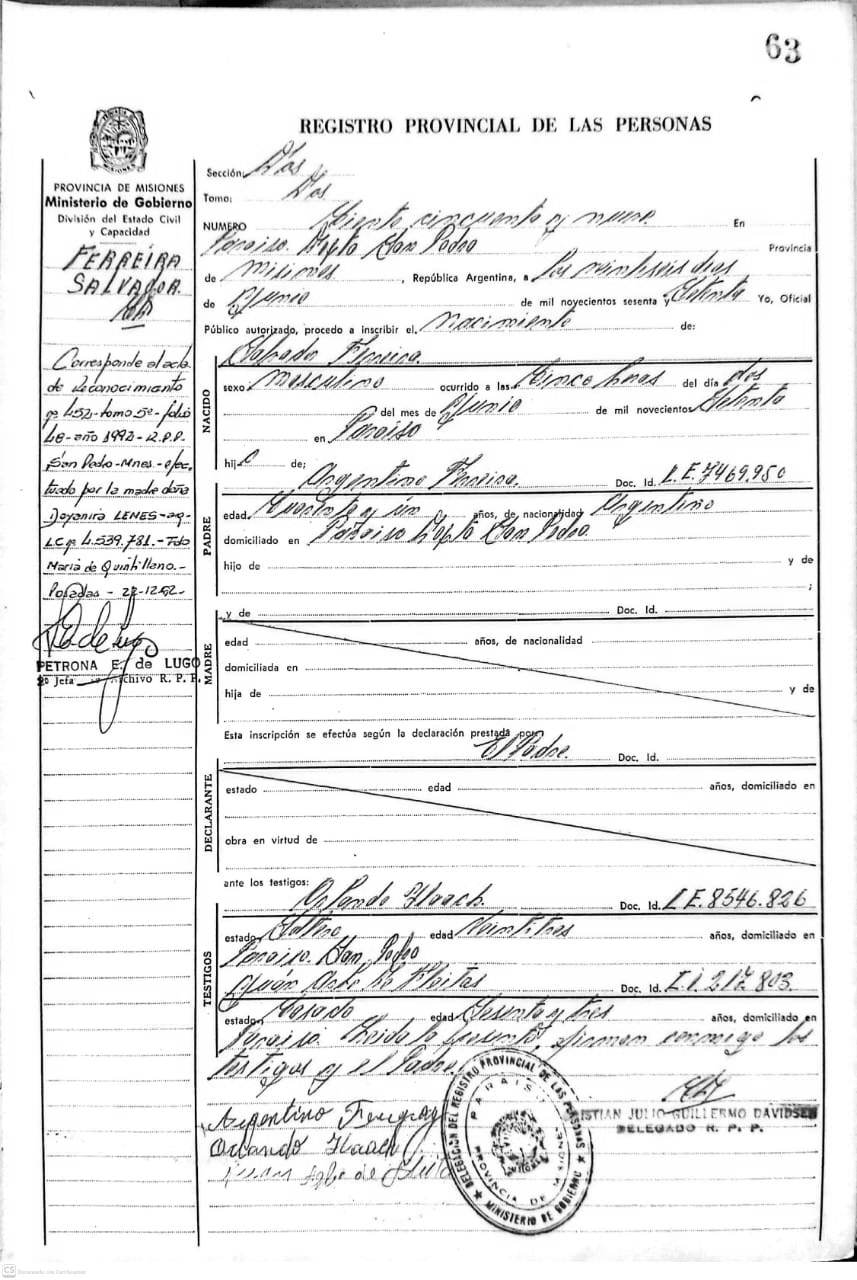 63
REGISTRO PROVINCIAL DE LAS PERSONAS
PROVINCIA DE MISIONES
Ministerio de Gobierno
División del Estado Civil
y Capacidad
FERREIRA
SALVADOR
Corresponde el acta
de Reconocimiento
nº 452 - tomo 5º - folio
48 - año 1992 - R.P.P.
San Pedro - Mnes. - efec
tuado por la madre doña
Deyanira LENES - arg -
LC nº 4.539.781. - Fdo
Maria de Quintillano. -
Posadas - 22-12-92 -
PETRONA E. de LUGO
2º Jefa Archivo R. P. P.
Sección: Dos
Tomo: Dos
NUMERO Ciento cincuenta y nueve En
Paraiso Depto San Pedro Provincia
de Misiones , República Argentina, a los veintiseis dias
de Junio de mil novecientos sesenta y Setenta Yo, Oficial
Público autorizado, procedo a inscribir el Nacimiento de:
NACIDO
Salvador Ferreira
sexo masculino ocurrido a las Cinco horas del día dos
del mes de Junio de mil novecientos Setenta
en Paraiso
hijo de;
PADRE
Argentino Ferreira. Doc. Id. L.E. 7469.950
edad Cuarenta y un años, de nacionalidad Argentino
domiciliado en Paraiso Depto San Pedro
hijo de y de
;
MADRE
y de Doc. Id.
edad años, de nacionalidad
domiciliada en
hija de y de
Esta inscripción se efectúa según la declaración prestada por
El Padre. Doc. Id.
DECLARANTE
estado edad años, domiciliado en
obra en virtud de
ante los testigos:
TESTIGOS
Orlando Haach. Doc. Id. L.E. 8546.826
estado Soltero edad Veintitres años, domiciliado en
Paraiso San Pedro
Juán de Fleitas Doc. Id. 217.803.
estado Casado edad Sesenta y tres años, domiciliado en
Paraiso. Leida la presente, firman conmigo los
testigos y el Padre
Argentino
Orlando Haach
DELEGACIÓN DEL REGISTRO PROVINCIAL DE LAS PERSONAS
PARAISO
PROVINCIA DE MISIONES
MINISTERIO DE GOBIERNO
ISTIAN JULIO GUILLERMO DAVIDSEN
DELEGADO R. P. P.
CS Escaneado con CamScanner